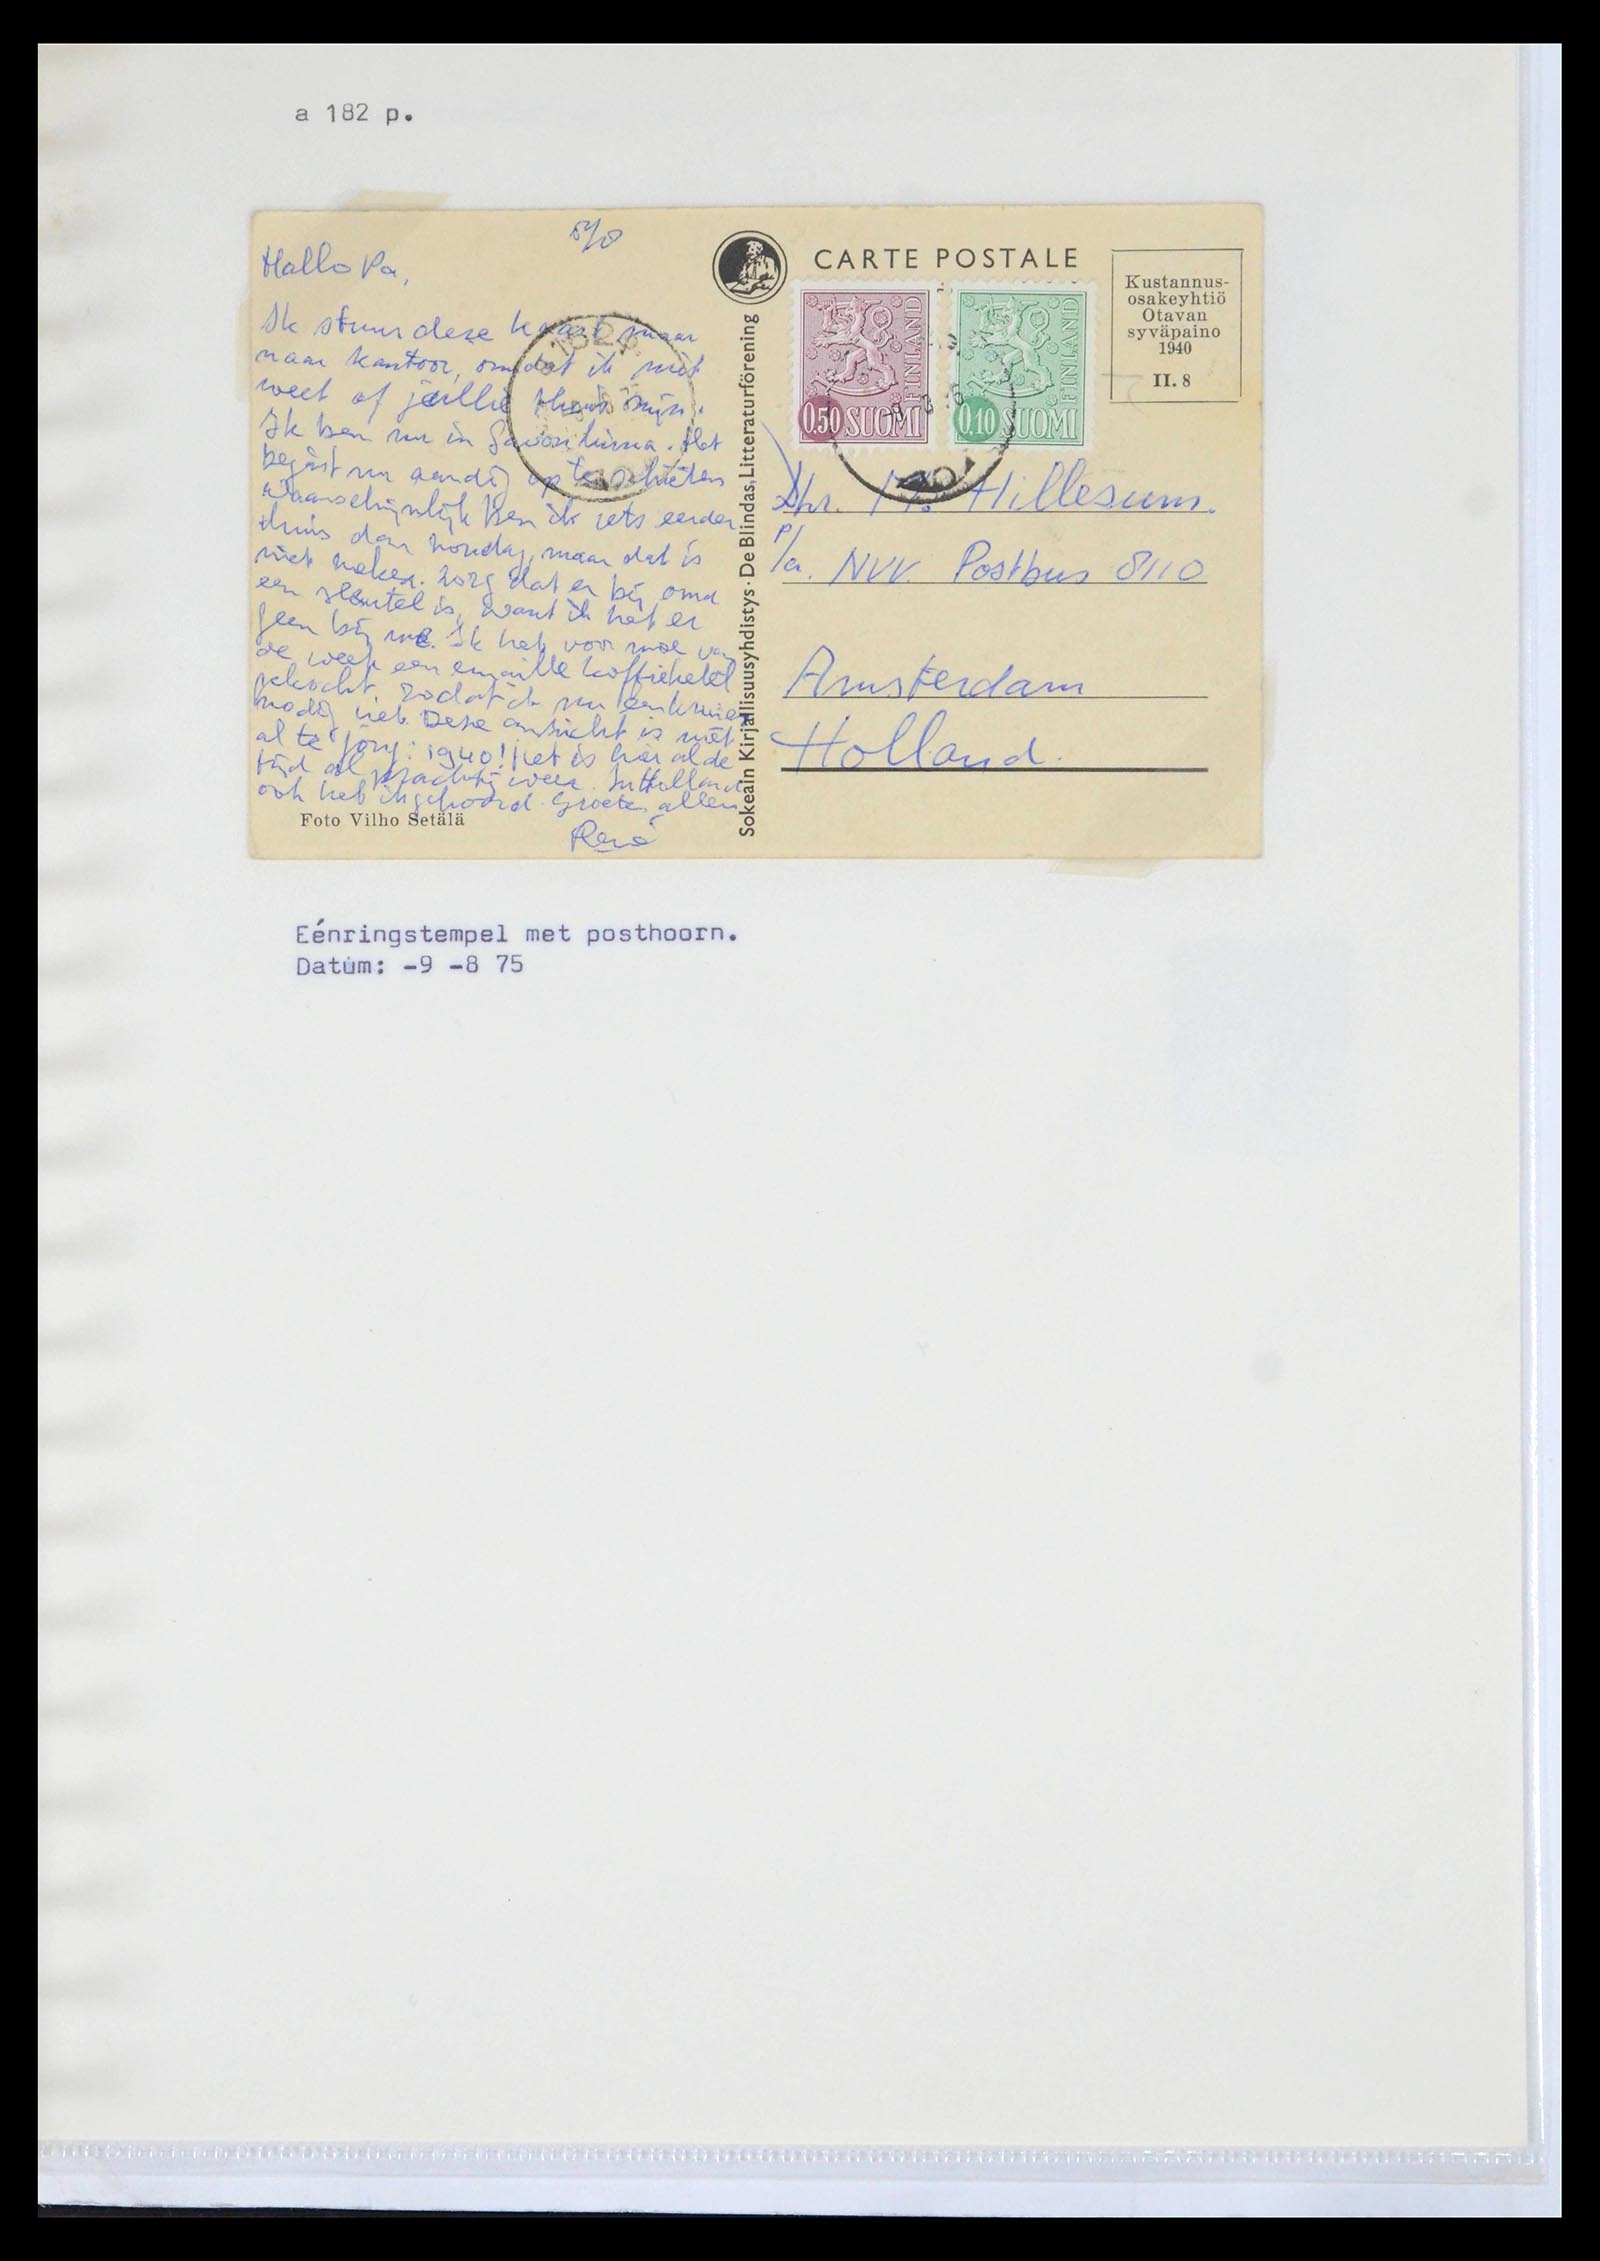 a 182 p.
5/8
Hallo Pa,
Ik stuur deze kaart maar
naar kantoor, omdat ik niet
weet of jullie thuis zijn.
Ik ben nu in Savonlinna. Het
begint nu aardig op te schieten
Waarschijnlijk ben ik iets eerder
thuis dan zondag, maar dat is
niet zeker. Zorg dat er bij oma
een sleutel is, want ik heb er
geen bij me. Ik heb voor moe van
de week een emaille koffieketel
gekocht, zodat ik nu een
nodig heb. Deze ansicht is niet
al te jong: 1940! Het is hier al de
tijd al prachtig weer. In Holland
ook heb ik gehoord. Groeten allen
René
Foto Vilho Setälä
Sokeain Kirjallisuusyhdistys · De Blindas Litteraturförening
CARTE POSTALE
0.50 SUOMI
FINLAND
0.10 SUOMI
FINLAND
Kustannus-
osakeyhtiö
Otavan
syväpaino
1940
II. 8
Dhr. M. Hillesum.
p/a. NVV. Postbus 8110
Amsterdam
Holland.
Eénringstempel met posthoorn.
Datum: -9 -8 75